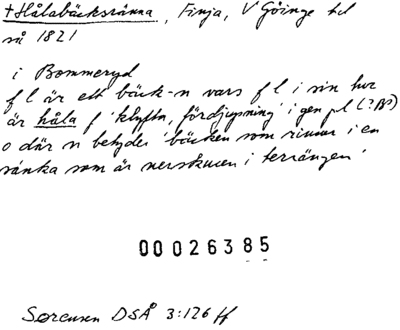 +Hålabäcksränna, Finja, V Göinge hd
nå 1821
i Bommeryd
f l är ett bäck-n vars f l i sin tur
är håla f 'klyfta, fördjupning' i gen pl (?BS)
o där n betyder 'bäcken som rinner i en
sänka som är nerskuren i terrängen'
00026385
Sørensen DSÅ 3:126 ff